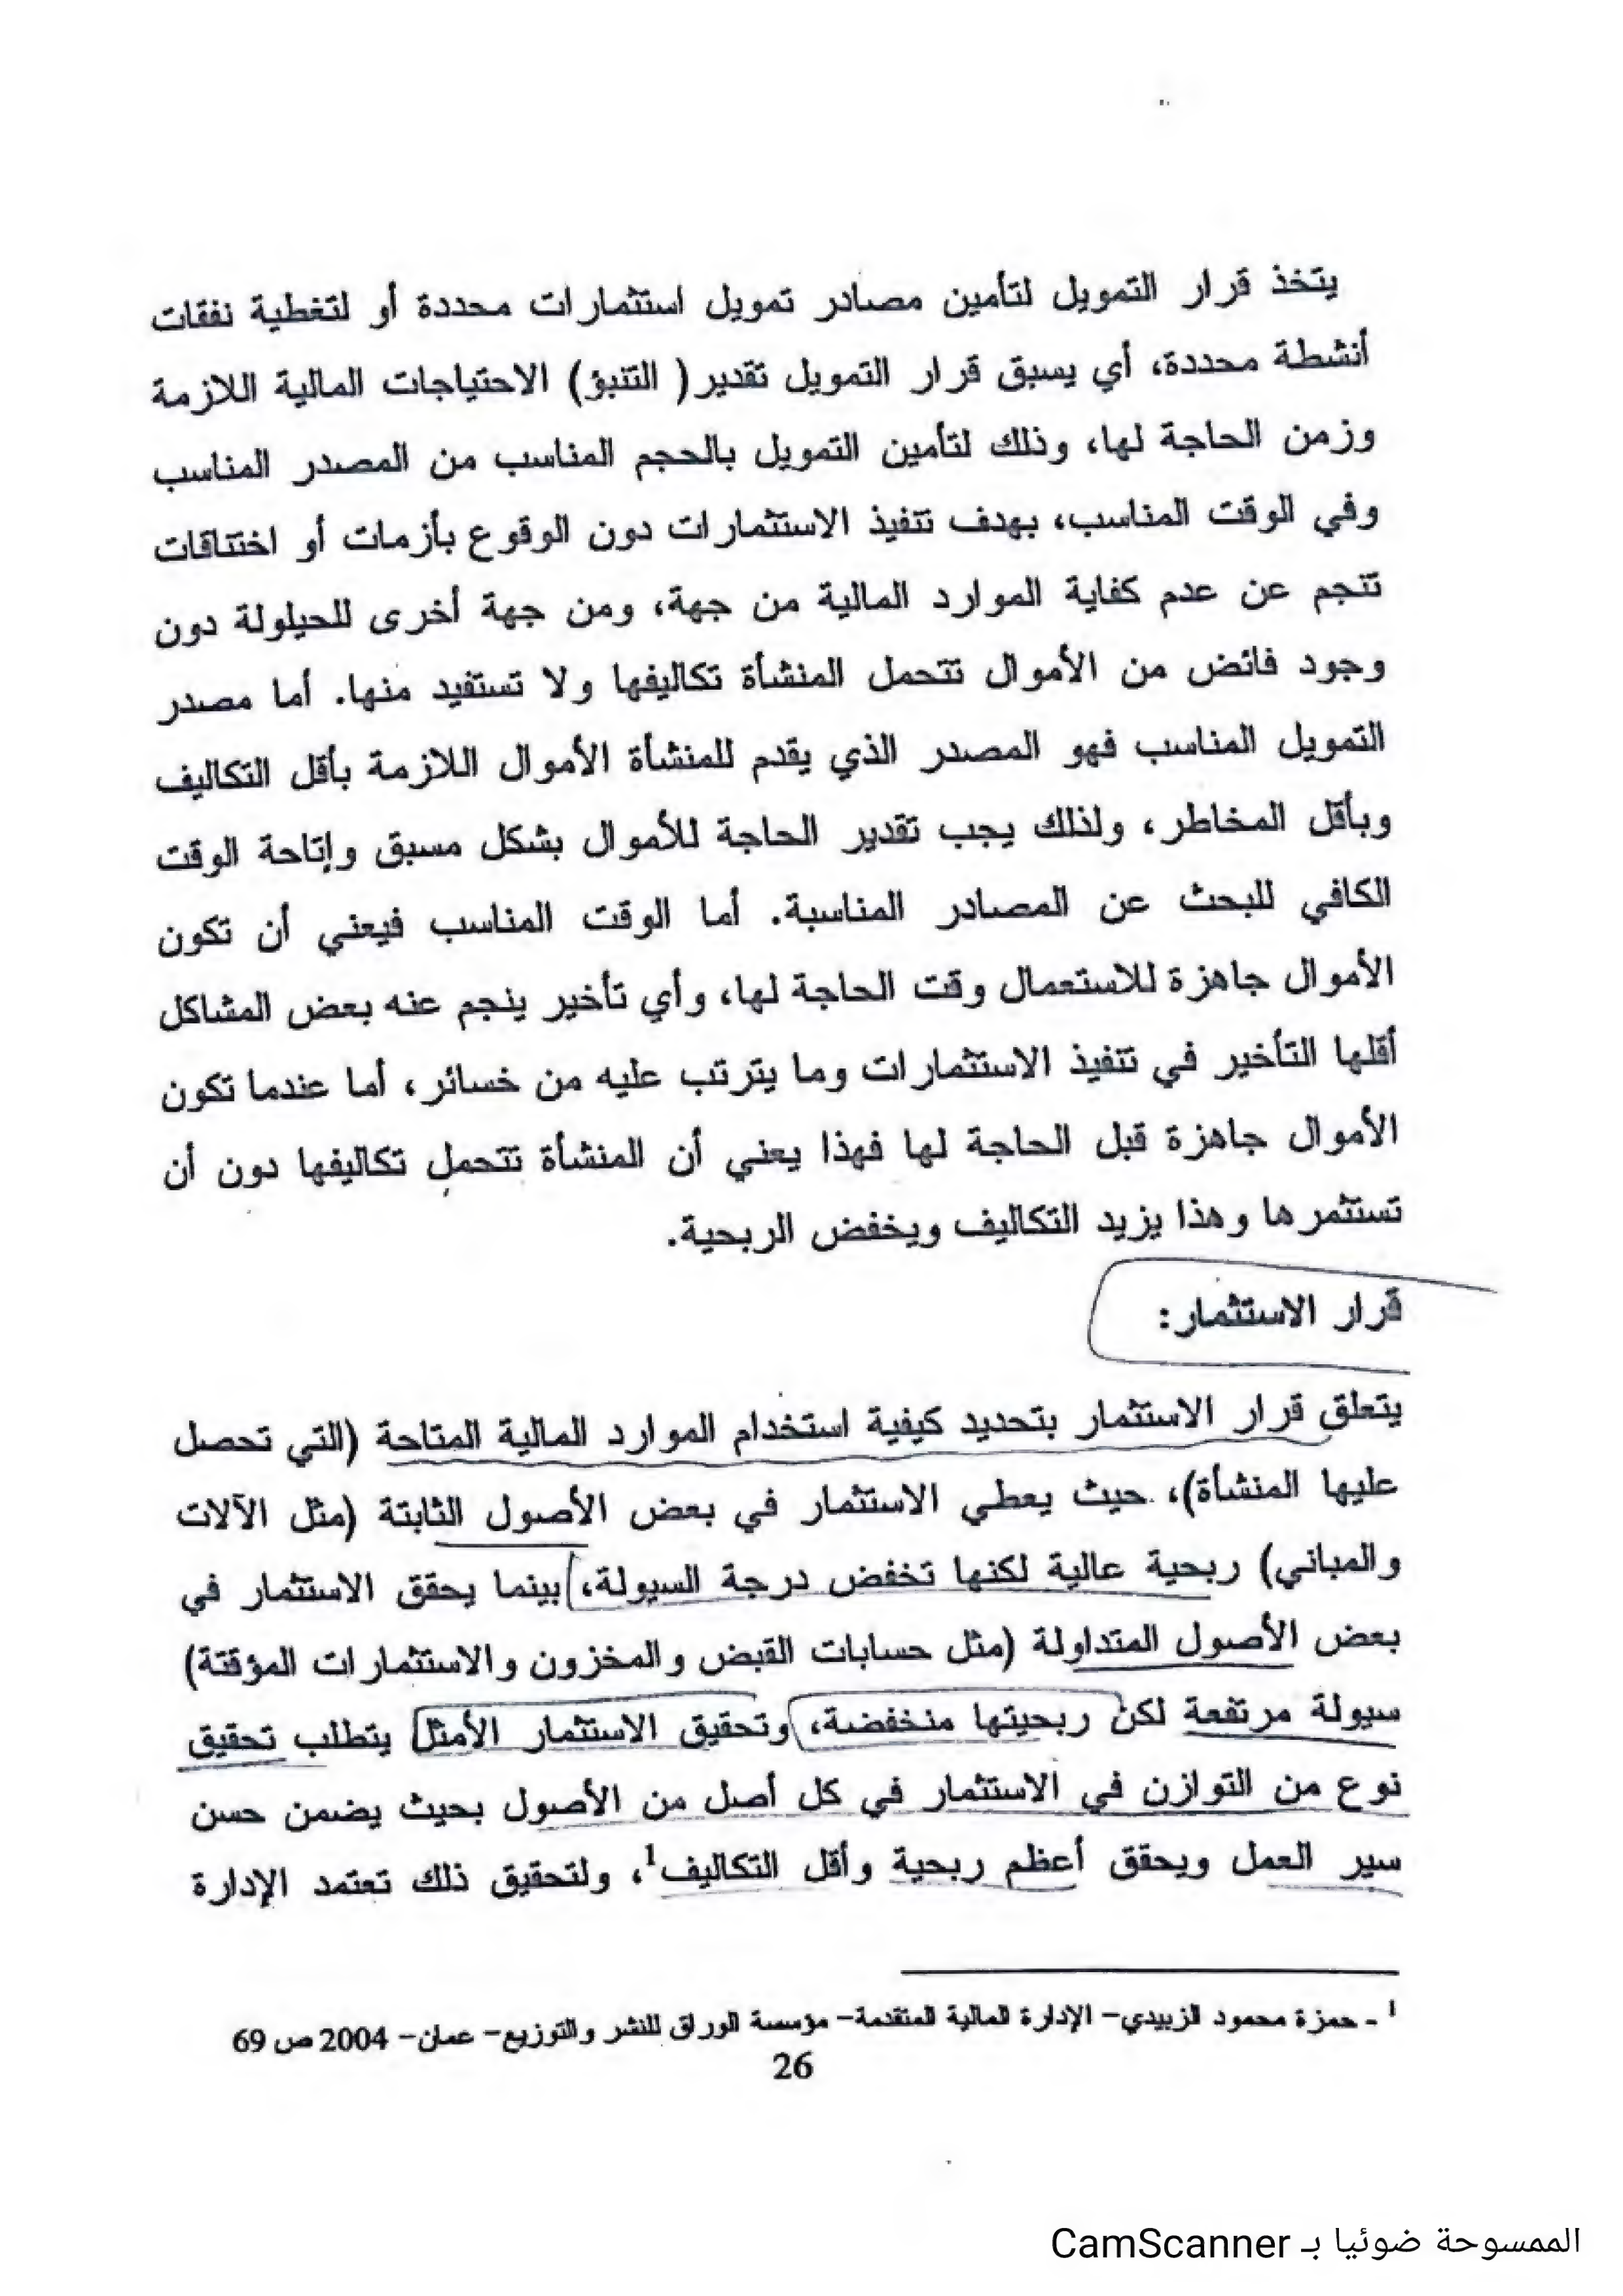 يتخذ قرار التمويل لتأمين مصادر تمويل استثمارات محددة أو لتغطية نفقات
أنشطة محددة، أي يسبق قرار التمويل تقدير( التنبؤ) الاحتياجات المالية اللازمة
وزمن الحاجة لها، وذلك لتأمين التمويل بالحجم المناسب من المصدر المناسب
وفي الوقت المناسب، بهدف تنفيذ الاستثمارات دون الوقوع بأزمات أو اختناقات
تنجم عن عدم كفاية الموارد المالية من جهة، ومن جهة أخرى للحيلولة دون
وجود فائض من الأموال تتحمل المنشأة تكاليفها ولا تستفيد منها. أما مصدر
التمويل المناسب فهو المصدر الذي يقدم للمنشأة الأموال اللازمة بأقل التكاليف
وبأقل المخاطر، ولذلك يجب تقدير الحاجة للأموال بشكل مسبق وإتاحة الوقت
الكافي للبحث عن المصادر المناسبة. أما الوقت المناسب فيعني أن تكون
الأموال جاهزة للاستعمال وقت الحاجة لها، وأي تأخير ينجم عنه بعض المشاكل
أقلها التأخير في تنفيذ الاستثمارات وما يترتب عليه من خسائر، أما عندما تكون
الأموال جاهزة قبل الحاجة لها فهذا يعني أن المنشأة تتحمل تكاليفها دون أن
تستثمرها وهذا يزيد التكاليف ويخفض الربحية.
قرار الاستثمار:
يتعلق قرار الاستثمار بتحديد كيفية استخدام الموارد المالية المتاحة (التي تحصل
عليها المنشأة)، حيث يعطي الاستثمار في بعض الأصول الثابتة (مثل الآلات
والمباني) ربحية عالية لكنها تخفض درجة السيولة، بينما يحقق الاستثمار في
بعض الأصول المتداولة (مثل حسابات القبض والمخزون والاستثمارات المؤقتة)
سيولة مرتفعة لكن ربحيتها منخفضة، وتحقيق الاستثمار الأمثل يتطلب تحقيق
نوع من التوازن في الاستثمار في كل أصل من الأصول بحيث يضمن حسن
سير العمل ويحقق أعظم ربحية وأقل التكاليف1، ولتحقيق ذلك تعتمد الإدارة
1 - حمزة محمود الزبيدي- الإدارة المالية المتقدمة- مؤسسة الوراق للنشر والتوزيع- عمان- 2004 ص 69
26
الممسوحة ضوئيا بـ CamScanner